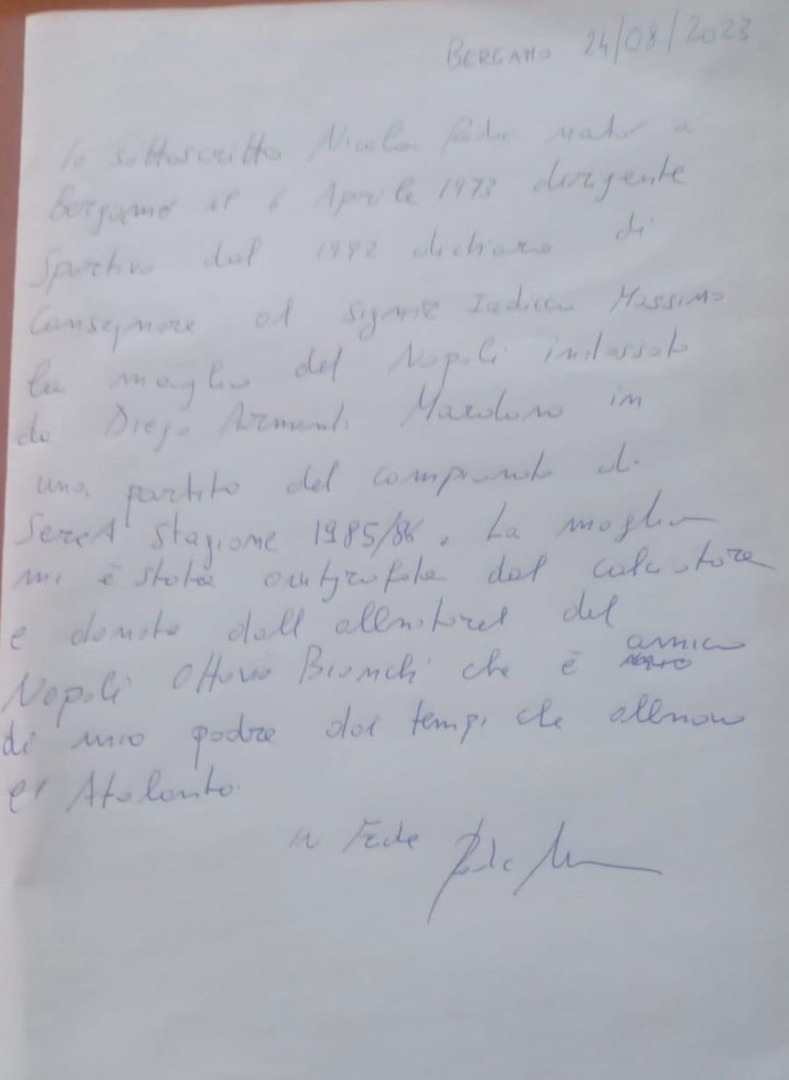 BERGAMO 24/08/2023
Io sottoscritto Nicola nato a
Bergamo il 6 Aprile 1973 dirigente
Sportivo dal 1992 dichiaro di
Consegnare al signor Iadicco Massimo
la maglia del Napoli indossata
da Diego Armando Maradona in
una partita del campionato di
Serie A Stagione 1985/86. La maglia
mi è stata autografata dal calciatore
e donata dall allenatore del
Napoli Ottavio Bianchi che è amico
di mio padre dai tempi che allenava
l'Atalanta.
In Fede